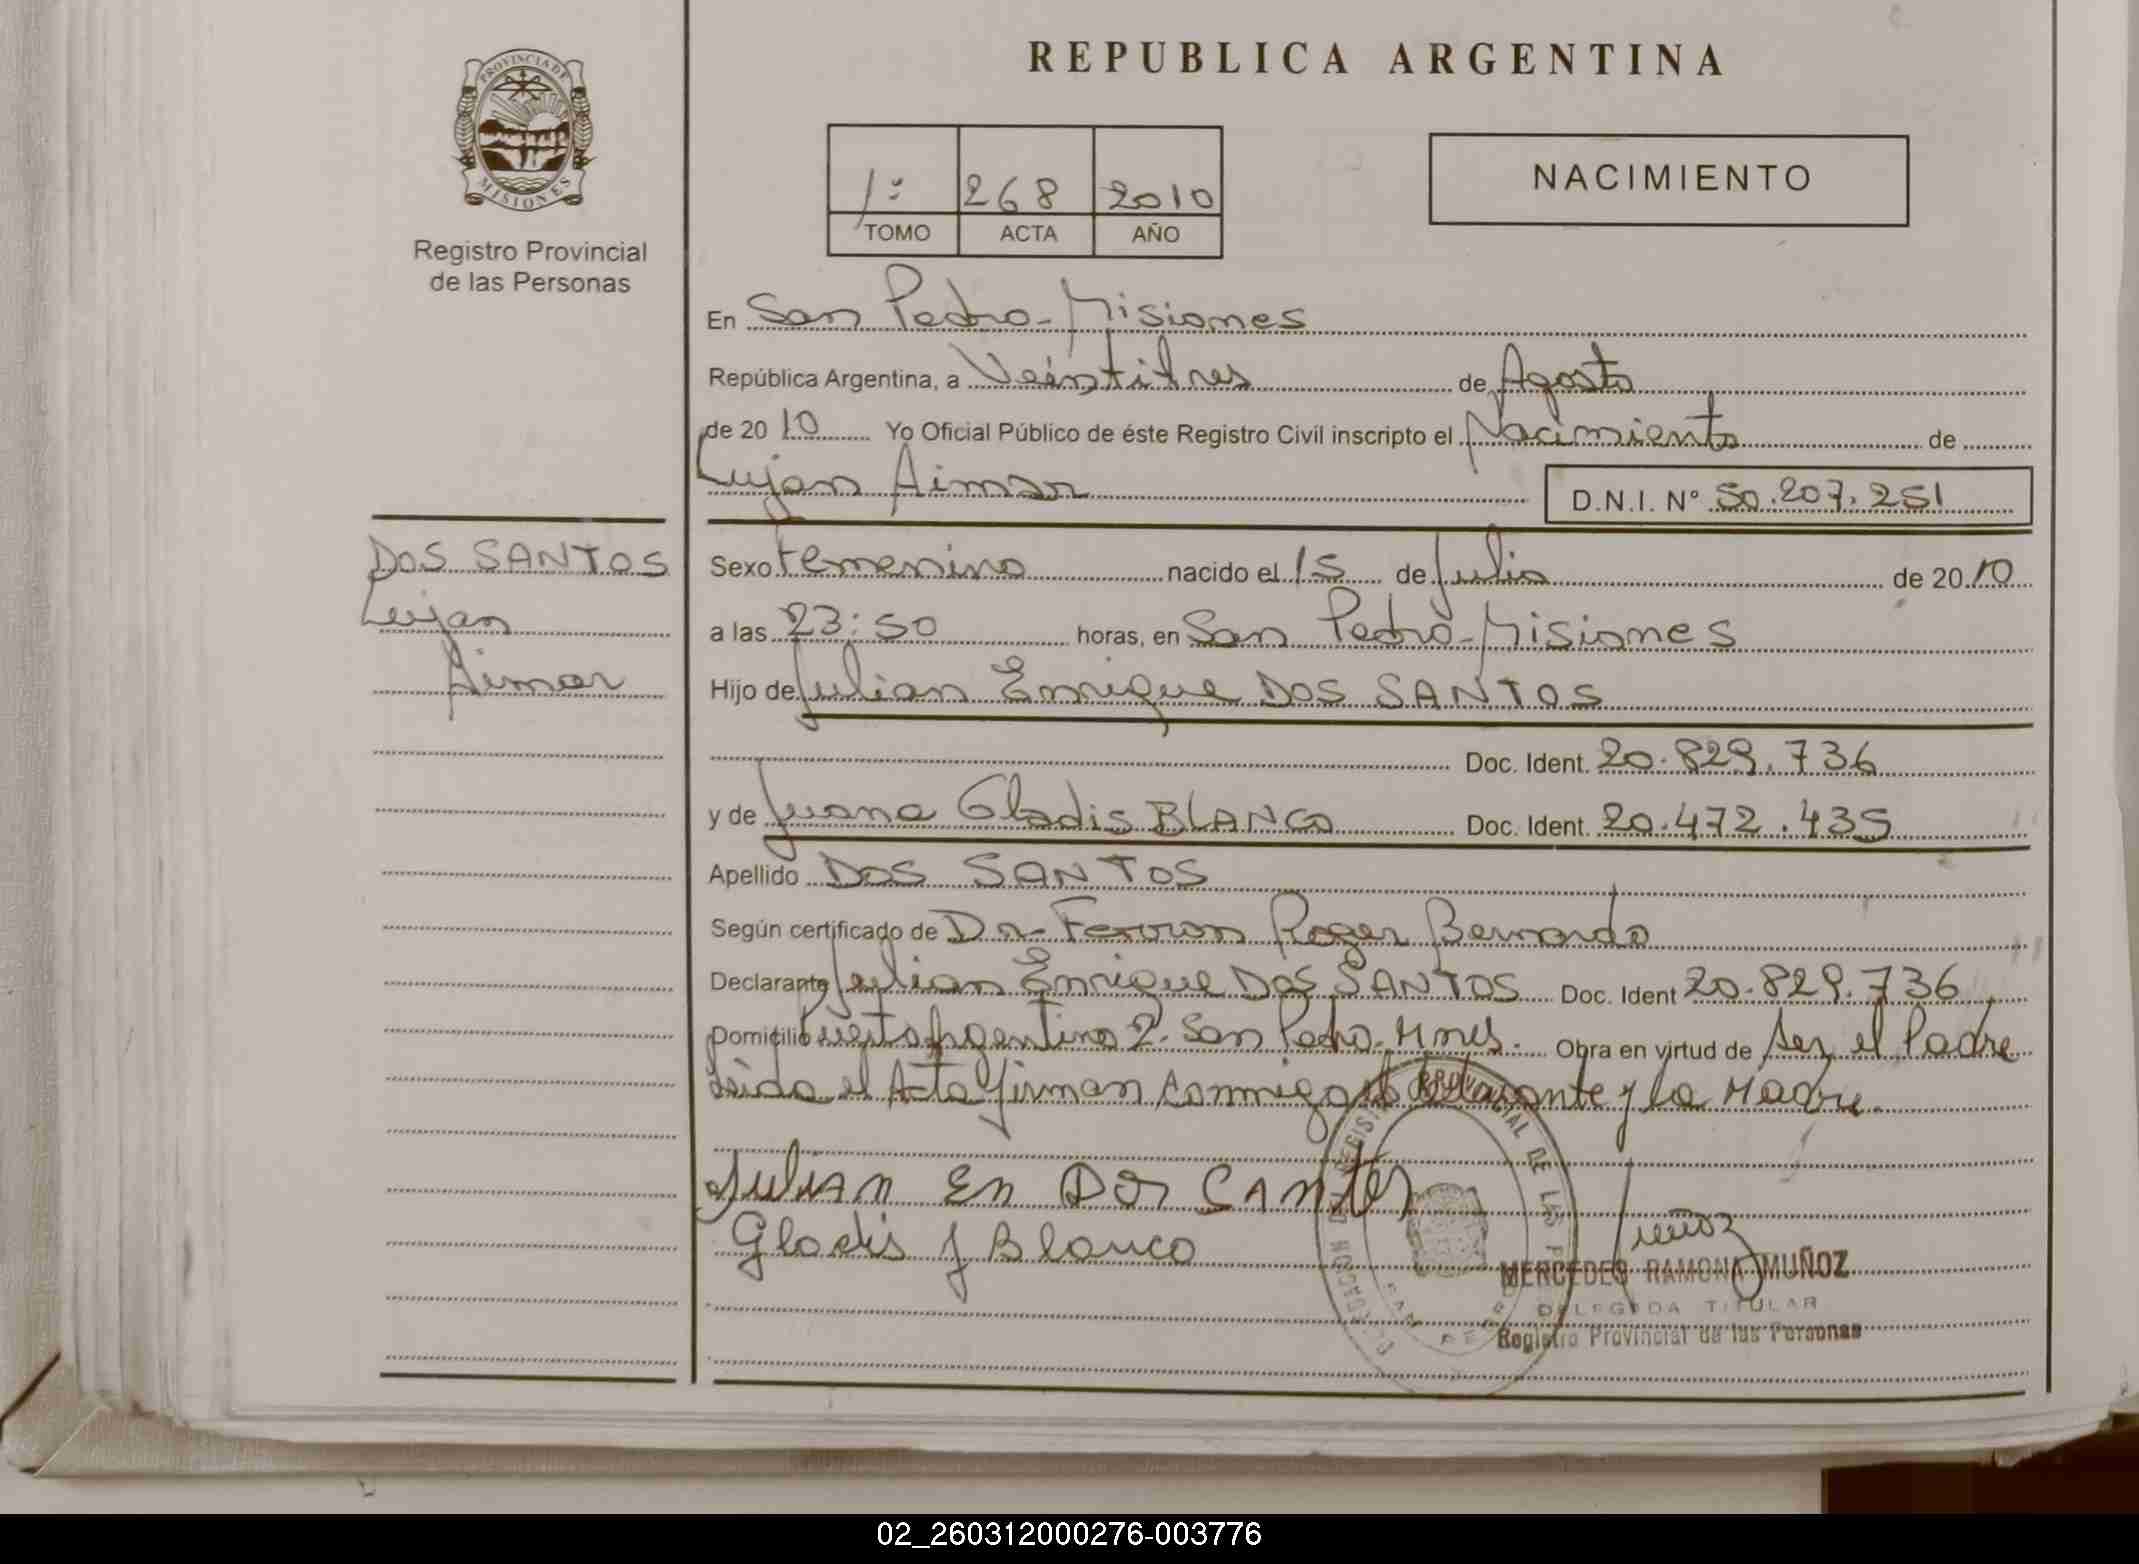 PROVINCIA DE
MISIONES
Registro Provincial
de las Personas
REPUBLICA ARGENTINA
1º 268 2010
TOMO ACTA AÑO
NACIMIENTO
En San Pedro-Misiones
República Argentina, a Veintitres de Agosto
de 2010 Yo Oficial Público de éste Registro Civil inscripto el Nacimiento de
Lujan Aimar D.N.I. Nº 50.207.251
DOS SANTOS
Lujan
Aimar
Sexo femenino nacido el 15 de Julio de 2010
a las 23:50 horas, en San Pedro-Misiones
Hijo de Julian Enrique DOS SANTOS
Doc. Ident. 20.829.736
y de Juana Gladis BLANCO Doc. Ident. 20.472.435
Apellido DOS SANTOS
Según certificado de Dr. Ferron Roger Bernardo
Declarante Julian Enrique DOS SANTOS Doc. Ident 20.829.736
Domicilio Puerto Argentino 2. San Pedro. Mnes. Obra en virtud de Ser el Padre
Leida el Acta firman conmigo el declarante y la Madre.
Julian En Dos Santos
Gladis J Blanco
Muñoz
MERCEDES RAMONA MUÑOZ
DELEGADA TITULAR
Registro Provincial de las Personas
02_260312000276-003776